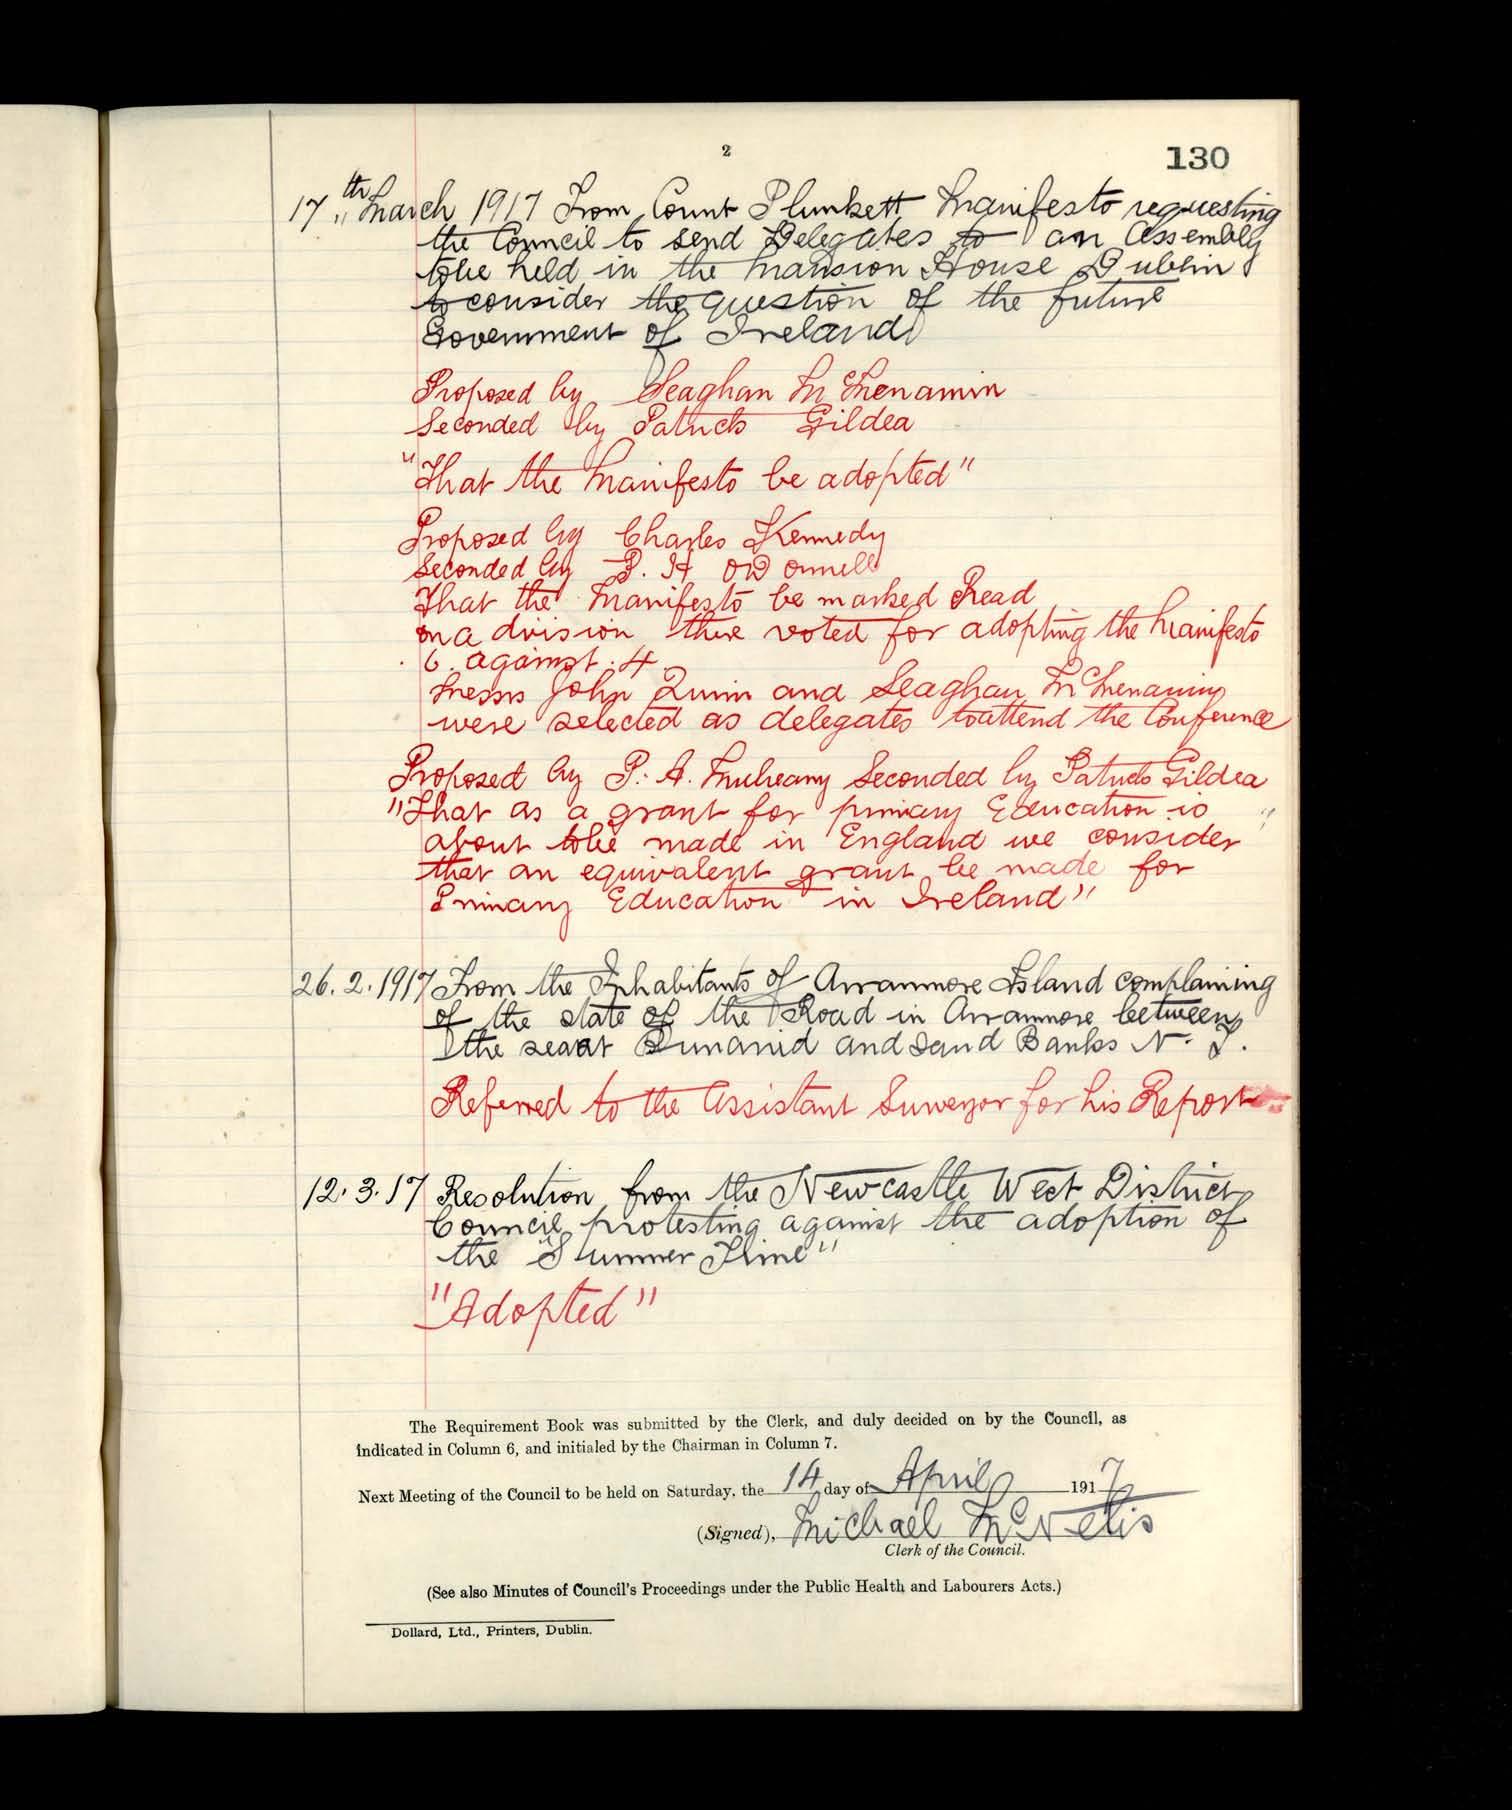 2
130
17th March 1917 From Count Plunkett Manifesto requesting
the Council to send Delegates to an Assembly
tobe held in the Mansion House Dublin
to consider the question of the future
Government of Ireland
Proposed by Seaghan McMenamin
Seconded by Patrick Gildea
"That the Manifesto be adopted"
Proposed by Charles Kennedy
Seconded by P. H O'Donnell
That the Manifesto be marked Read
on a division there voted for adopting the Manifesto
6. against. 4.
Messrs John Quinn and Seaghan McMenamin
were selected as delegates to attend the Conference
Proposed by P. A. Mulreany Seconded by Patrick Gildea
"That as a grant for primary Education is
about tobe made in England we consider
that an equivalent grant be made for
Primary Education in Ireland"
26. 2. 1917 From the Inhabitants of Arranmore Island complaining
of the state of the Road in Arranmore between
the sea at and Sand Banks
Referred to the Assistant Surveyor for his Report
12. 3. 17 Resolution from the Newcastle West District
Council protesting against the adoption of
the "Summer Time"
"Adopted"
The Requirement Book was submitted by the Clerk, and duly decided on by the Council, as
indicated in Column 6, and initialed by the Chairman in Column 7.
Next Meeting of the Council to be held on Saturday, the 14 day of April 1917
(Signed), Michael McNelis
Clerk of the Council.
(See also Minutes of Council's Proceedings under the Public Health and Labourers Acts.)
Dollard, Ltd., Printers, Dublin.